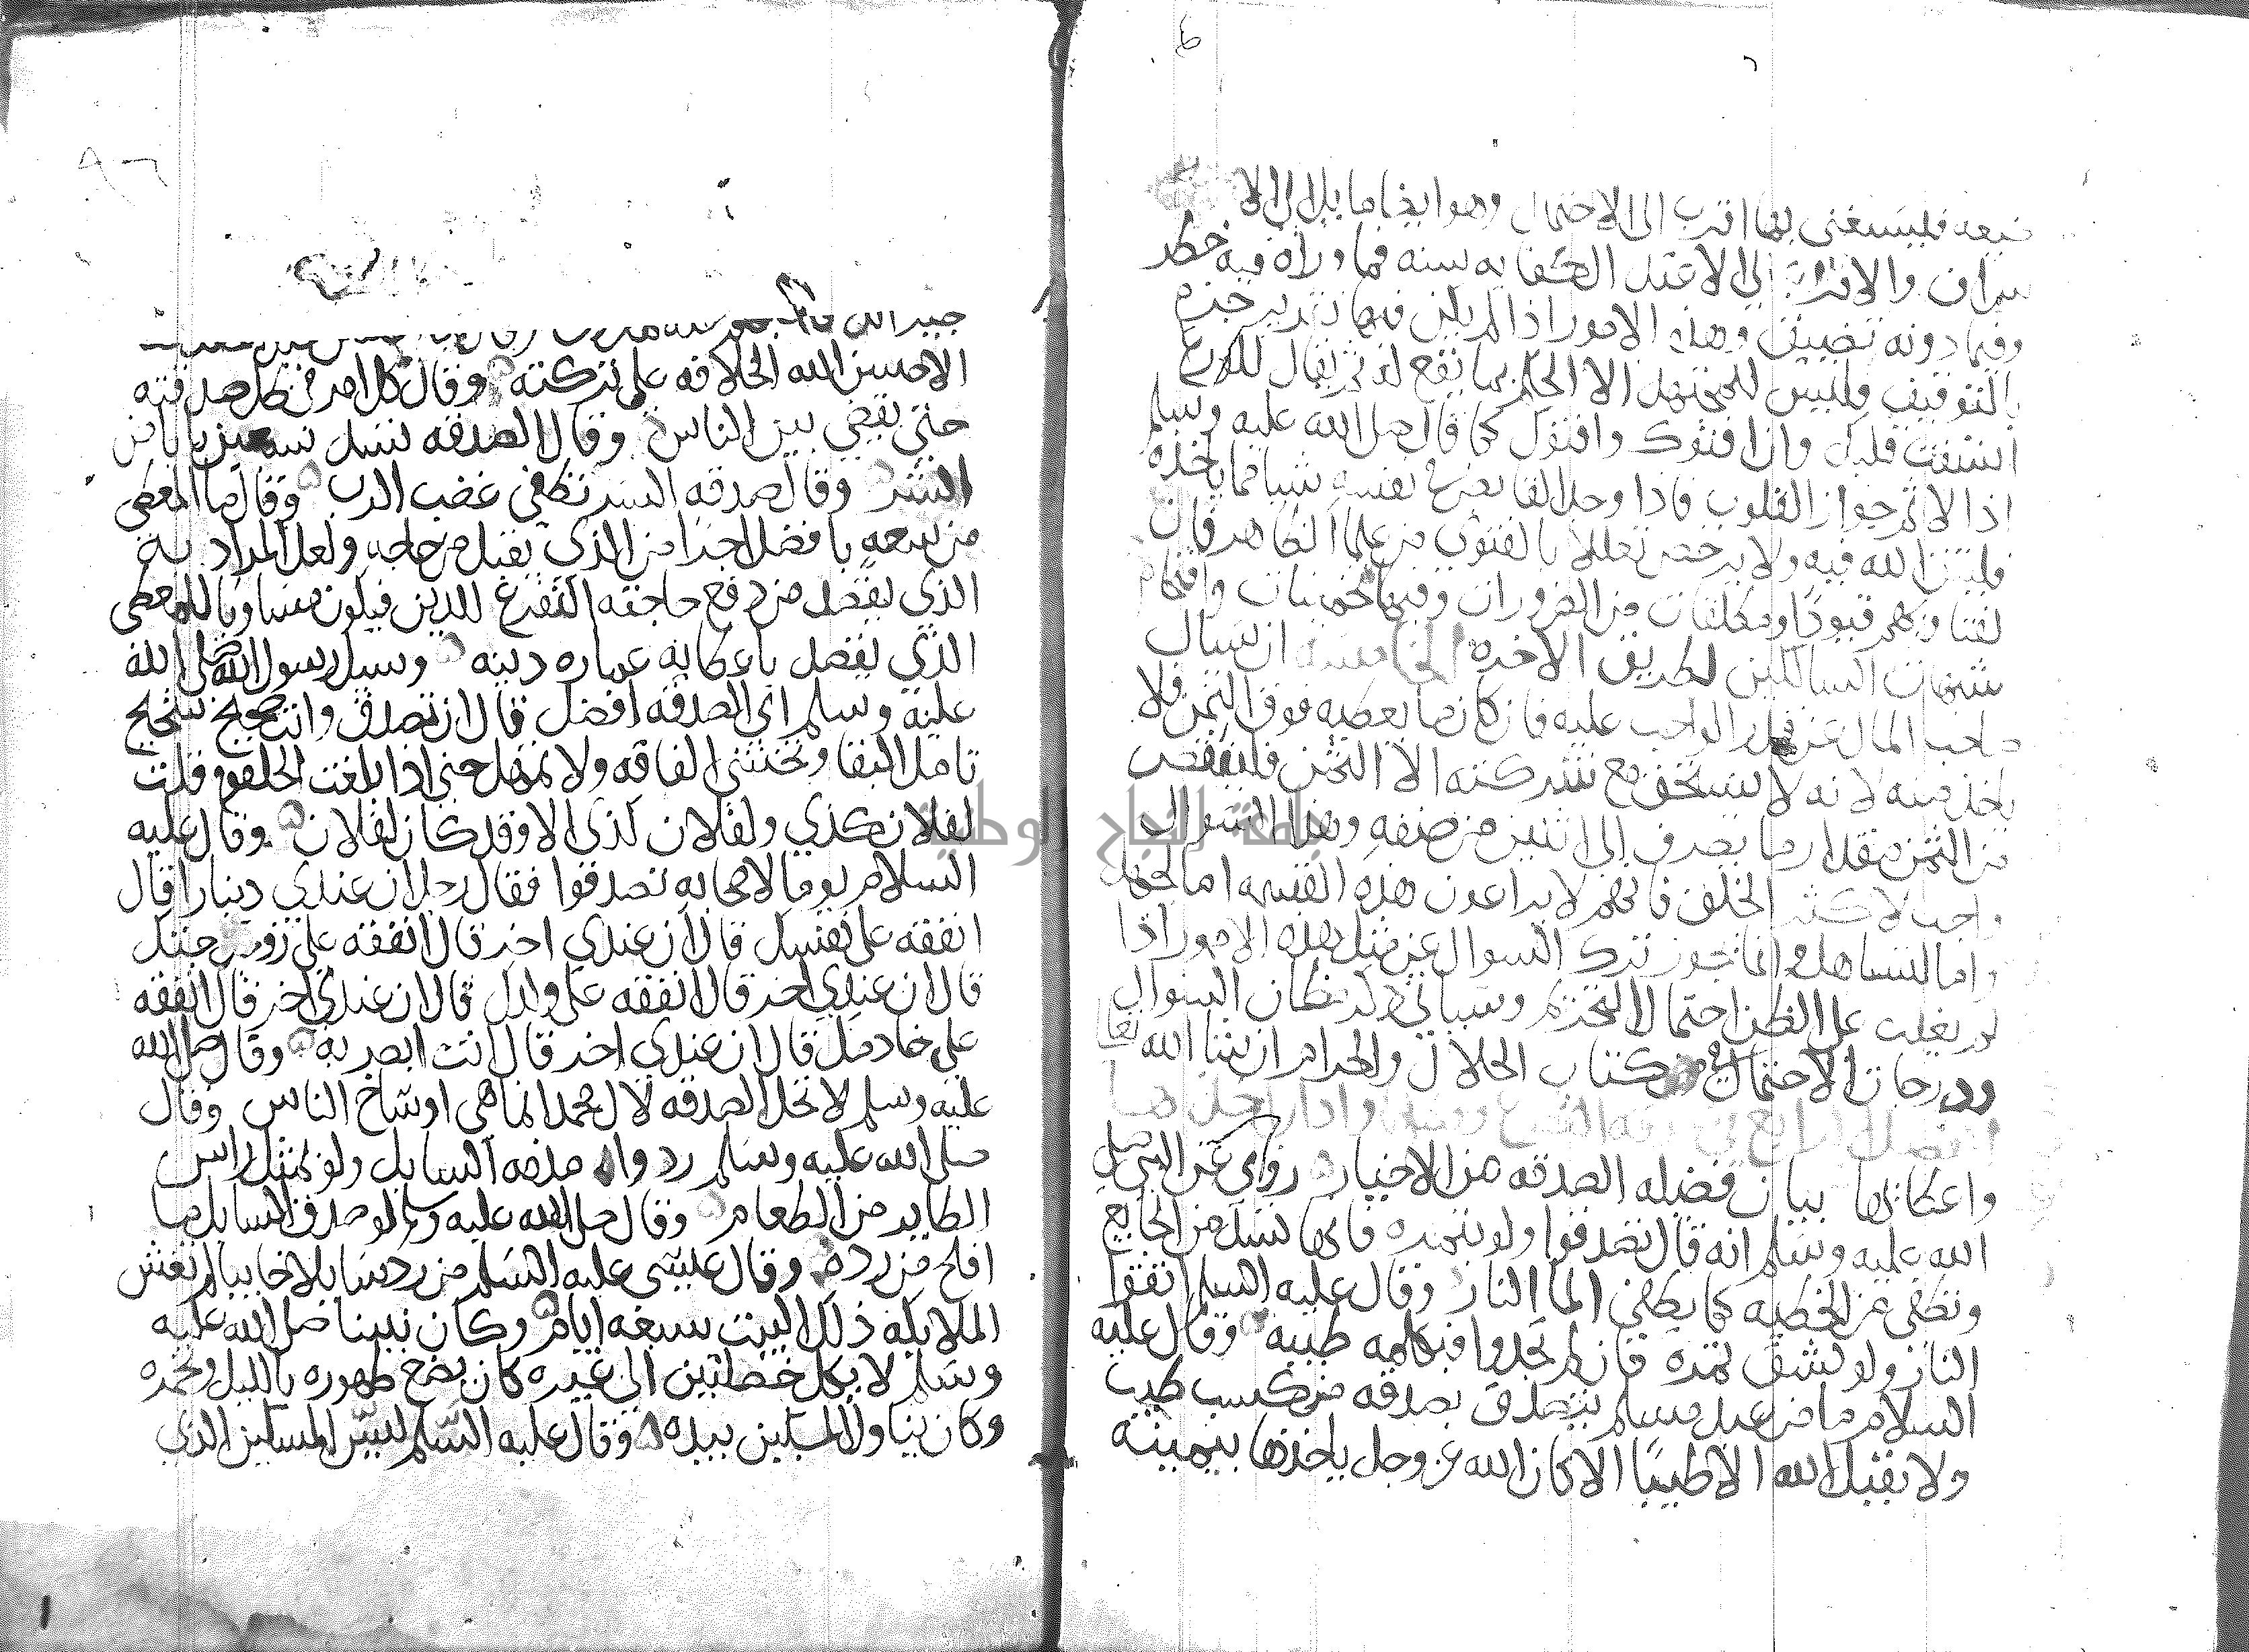 ضيعه فليستغنى بهما اقرب الى الاحتمال وهو ايضا ما يل الى الا
سراف والاقرب الى الاعتدال كفايه سنه فما وراه فيه خطر
وفيما دونه تضييق وهذه الامور اذا لم يكن فيها تقدير جزم
بالتوقيف فليس للمجتهد الا الحكم بما يقع له ثم يقال للورع
استفت قلبك وان افتوك وافتوك كما قال صلى الله عليه وسلم
اذا الاثم حواز القلوب فاذا وجد القابض في نفسه شيا مما ياخذه
فليتق الله فيه ولا يترخص تعللا بالفتوى من علما الظاهر فان
لفتاويهم قيودا ومطلقات من الضرورات وفيها تخمينات واقتحام
شبهات السالكين لطريق الاخره الخامسه ان يسال
صاحب المال عن قدر الواجب عليه فان كان ما يعطيه فوق الثمن فلا
ياخذ منه لانه لا يستحق مع شركته الا الثمن فلينقص
من الثمن مقدار ما يصرف الى اثنين من صنفه وهذا السوال
واجب لاكثر الخلق فانهم لا يراعون هذه القسمه اما لجهل
واما لتساهل وانما يجوز ترك السوال عن مثل هذه الامور اذا
لم يغلب على الظن احتمال التحريم وسياتي ذكر مظان السوال
ودرجات الاحتمال في كتاب الحلال والحرام ان شا الله تعا
الفصل الرابع في صدقه التطوع وفضلها واداب اخذها
واعطائها بيان فضيله الصدقه من الاخبار روي عن النبي صلى
الله عليه وسلم انه قال تصدقوا ولو بتمره فانها تسد من الجايع
وتطفى عن الخطيه كما يطفى الما النار وقال عليه السلم اتقوا
النار ولو بشق تمره فان لم تجدوا فبكلمه طيبه وقال عليه
السلام ما من عبد مسلم يتصدق بصدقه من كسب طيب
ولا يقبل الله الا طيبا الا كان الله عز وجل ياخذها بيمينه
الا احسن الله الخلافه على تركته وقال كل امرء في ظل صدقته
حتى يقضي بين الناس وقال الصدقه تسد سبعين بابا من
الشر وقال صدقه السر تطفي غضب الرب وقال ما المعطي
من سعه بافضل اجرا من الذي يقبل من حاجه ولعل المراد به
الذي يقصد من دفع حاجته التفرغ للدين فيكون مساويا للمعطى
الذي يقصد باعطايه عماره دينه وسيل رسول الله صلى الله
عليه وسلم اي الصدقه افضل قال ان تصدق وانت صحيح شحيح
تامل البقا وتخشى الفاقه ولا تمهل حتى اذا بلغت الحلقوم قلت
لفلان كذي ولفلان كذى الا وقد كان لفلان وقال عليه
السلام يوما لاصحابه تصدقوا فقال رجل ان عندي دينارا قال
انفقه على نفسك قال ان عندي اخر قال انفقه على زوجتك
قال ان عندي اخر قال انفقه على ولدك قال ان عندي اخر قال انفقه
على خادمك قال ان عندي اخر قال انت ابصر به وقال صلى الله
عليه وسلم لا تحل الصدقه لال محمد انما هي اوساخ الناس وقال
صلى الله عليه وسلم ردوا مذمه السايل ولو بمثل راس
الطاير من الطعام وقال صلى الله عليه وسلم لو صدق السايل ما
افلح من رده وقال عيسى عليه السلم من رد سايلا خايبا لم تغش
الملايكه ذلك البيت سبعه ايام وكان نبينا صلى الله عليه
وسلم لا يكل خصلتين الى غيره كان يضع طهوره بالليل ويخمره
وكان يناول المسكين بيده وقال عليه السلم ليس المسكين الذي